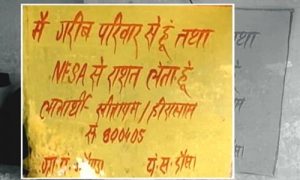 मै गरीब परिवार से हूं तथा
NFSA से राशन लेता हूं
लाभार्थी- सीताराम/हीरालाल
से 800405
ग्रा.पं. पं.स. दौसा